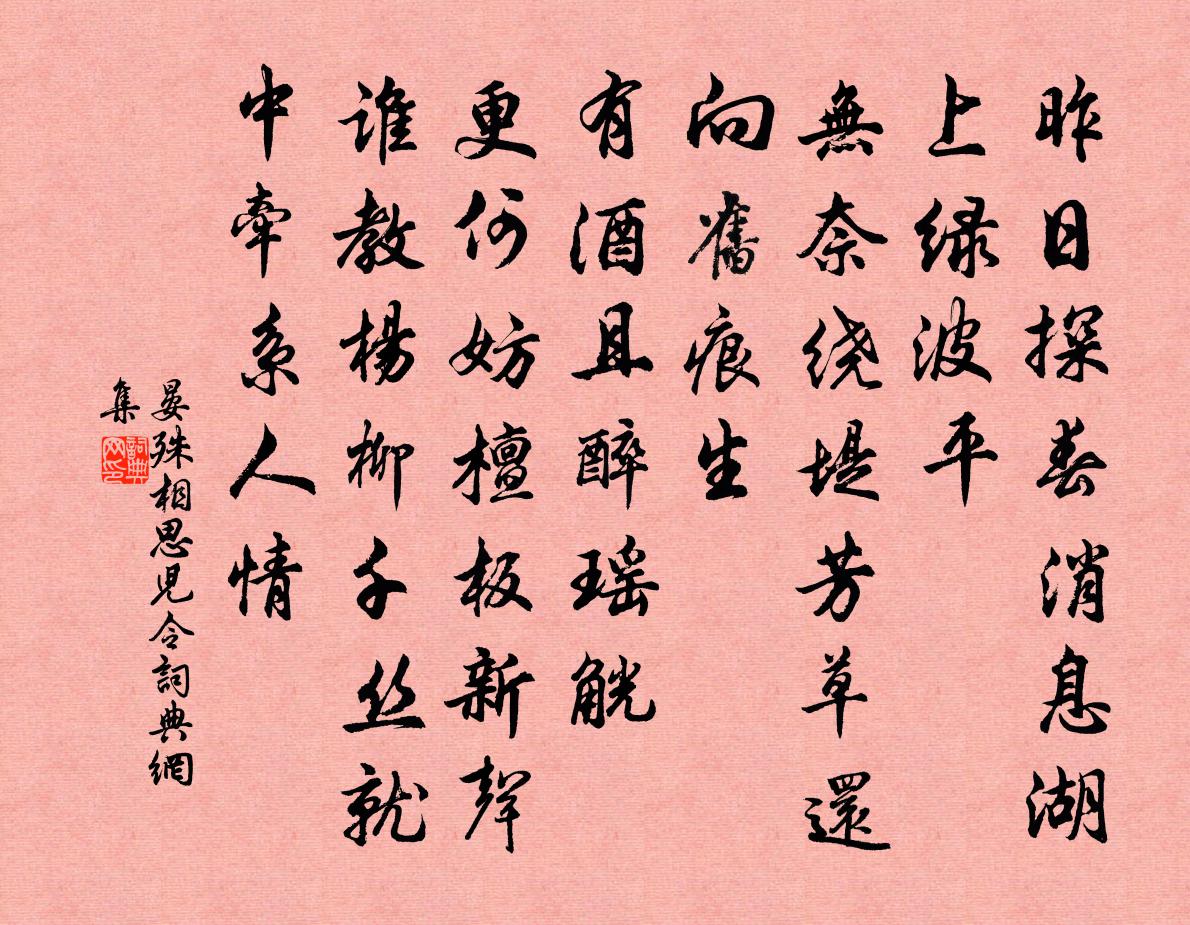 昨日探春消息湖
上绿波平
無奈绕堤芳草還
向舊痕生
有酒且醉瑶觥
更何妨檀板新聲
誰教楊柳千丝就
中牽系人情
晏殊相思児令詞典網
集
詞典
网印